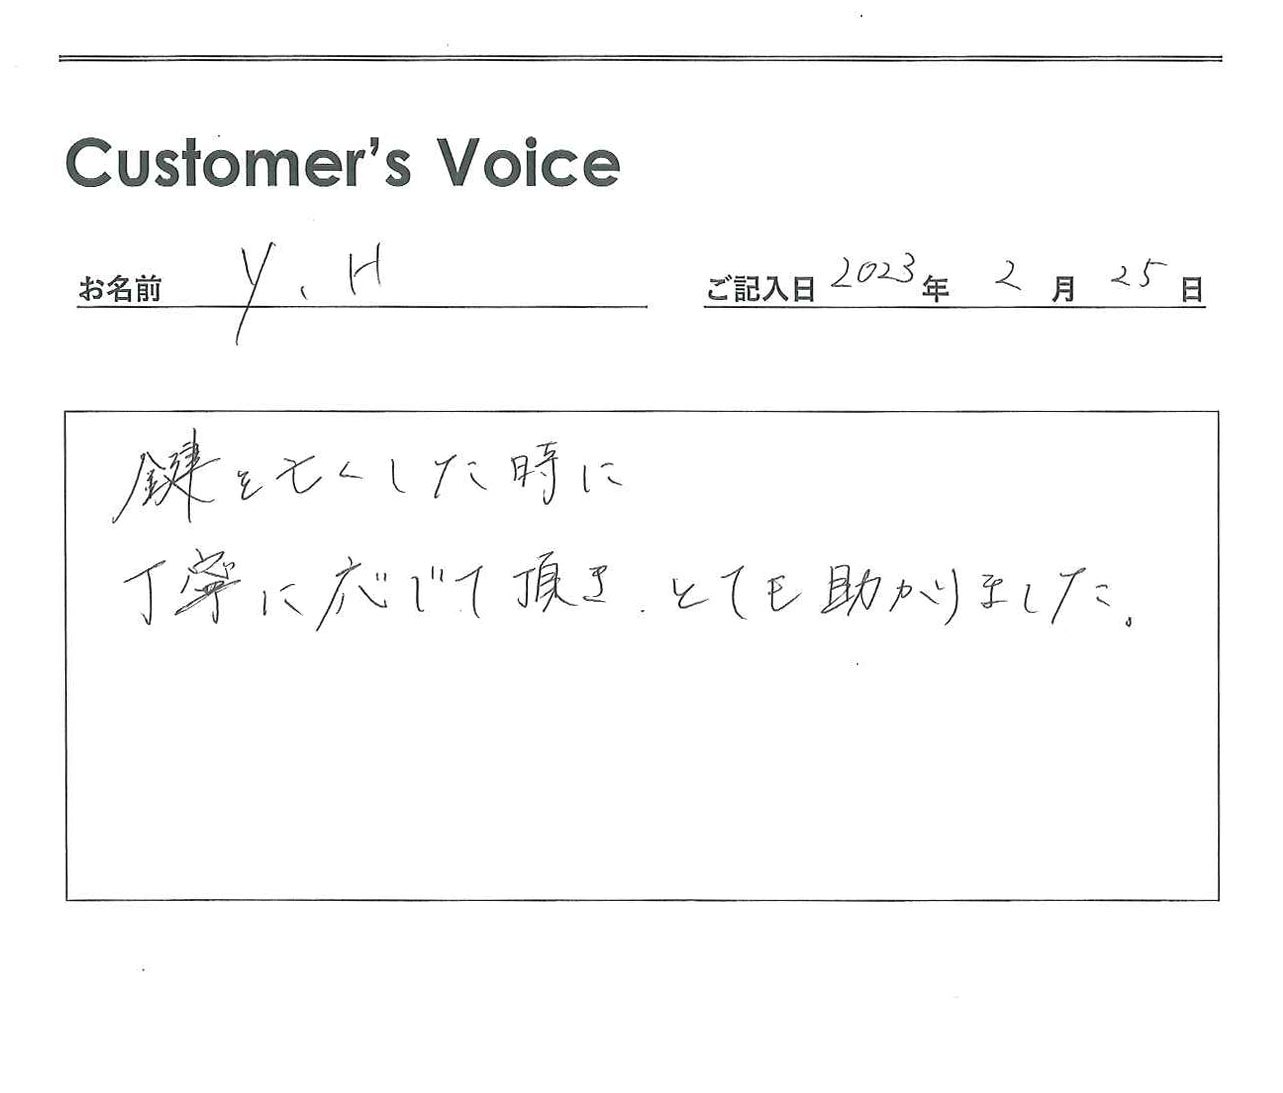 Customer's Voice
お名前 Y、H ご記入日 2023年 2月 25日
鍵を亡くした時に
丁寧に応じて頂き、とても助かりました。